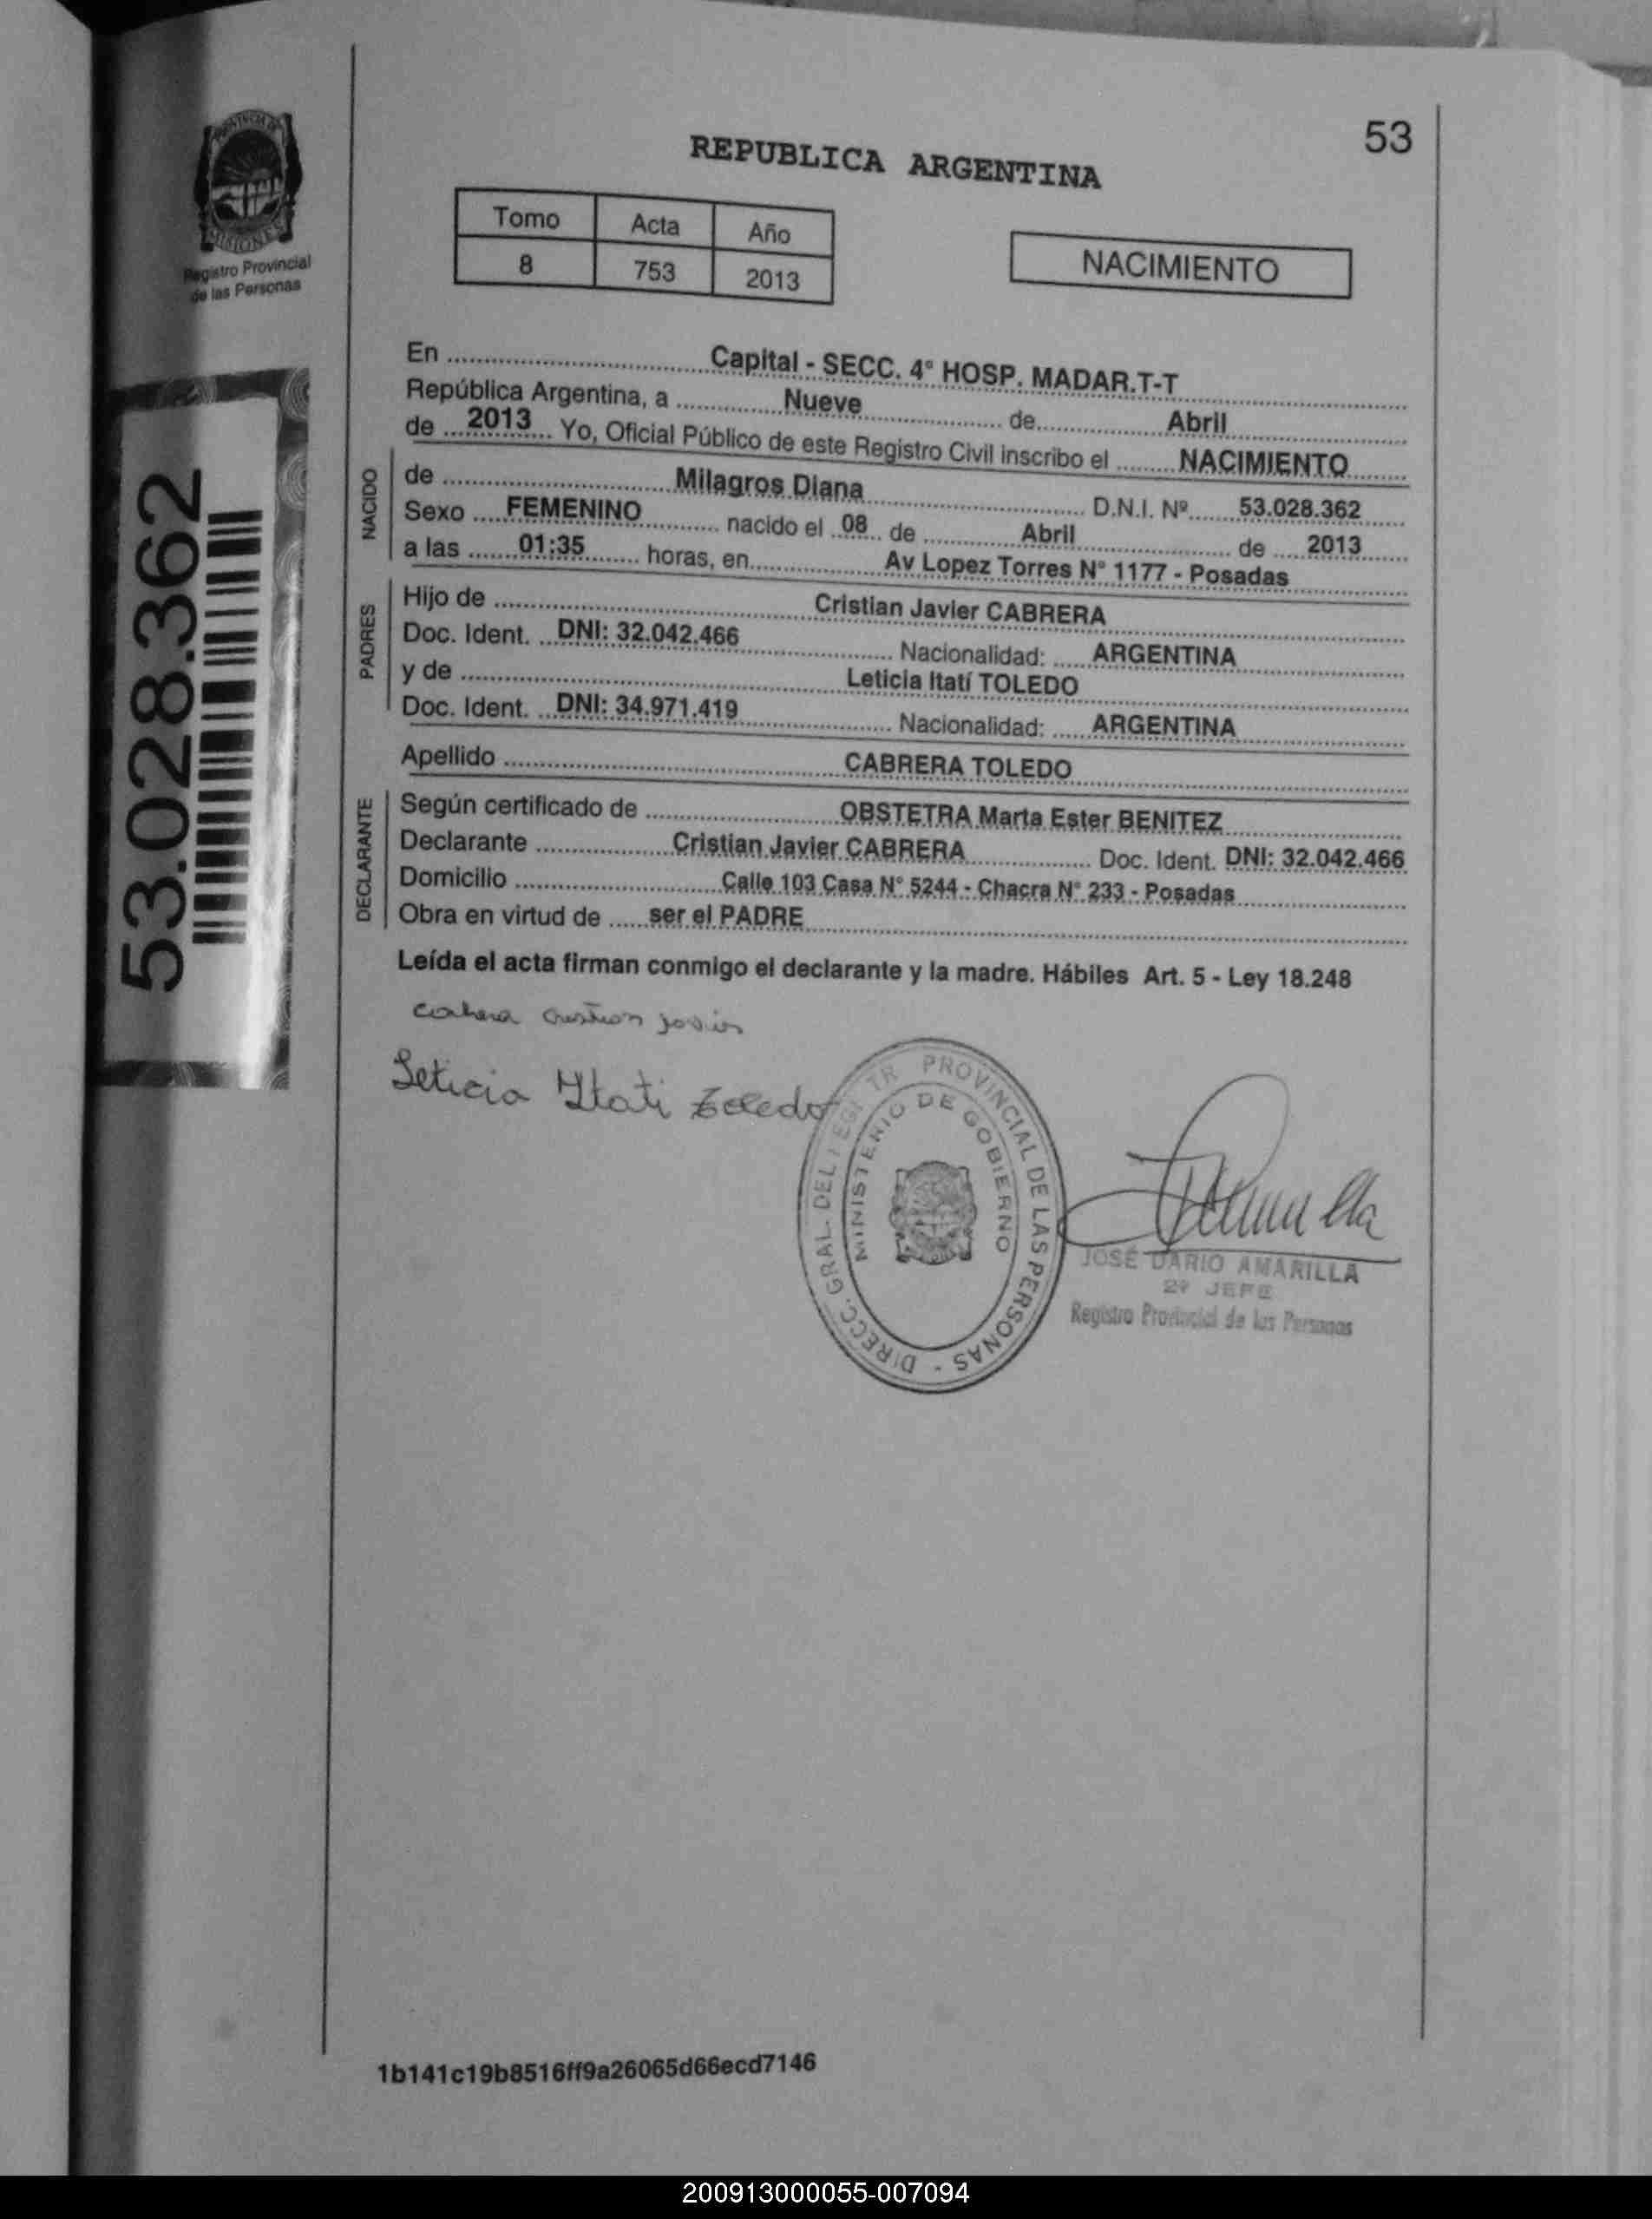 PROVINCIA DE
MISIONES
Registro Provincial
de las Personas
53.028.362
53
REPUBLICA ARGENTINA
Tomo Acta Año
8 753 2013
NACIMIENTO
En Capital - SECC. 4° HOSP. MADAR.T-T
República Argentina, a Nueve de Abril
de 2013 Yo, Oficial Público de este Registro Civil inscribo el NACIMIENTO
NACIDO
de Milagros Diana D.N.I. Nº 53.028.362
Sexo FEMENINO nacido el 08 de Abril de 2013
a las 01:35 horas, en Av Lopez Torres N° 1177 - Posadas
PADRES
Hijo de Cristian Javier CABRERA
Doc. Ident. DNI: 32.042.466 Nacionalidad: ARGENTINA
y de Leticia Itatí TOLEDO
Doc. Ident. DNI: 34.971.419 Nacionalidad: ARGENTINA
Apellido CABRERA TOLEDO
DECLARANTE
Según certificado de OBSTETRA Marta Ester BENITEZ
Declarante Cristian Javier CABRERA Doc. Ident. DNI: 32.042.466
Domicilio Calle 103 Casa N° 5244 - Chacra N° 233 - Posadas
Obra en virtud de ser el PADRE
Leída el acta firman conmigo el declarante y la madre. Hábiles Art. 5 - Ley 18.248
Cabrera Cristian Javier
Leticia Itati Toledo
DIRECC. GRAL. DEL PROVINCIAL DE LAS PERSONAS -
MINISTERIO DE GOBIERNO
JOSÉ DARIO AMARILLA
2º JEFE
Registro Provincial de las Personas
1b141c19b8516ff9a26065d66ecd7146
200913000055-007094